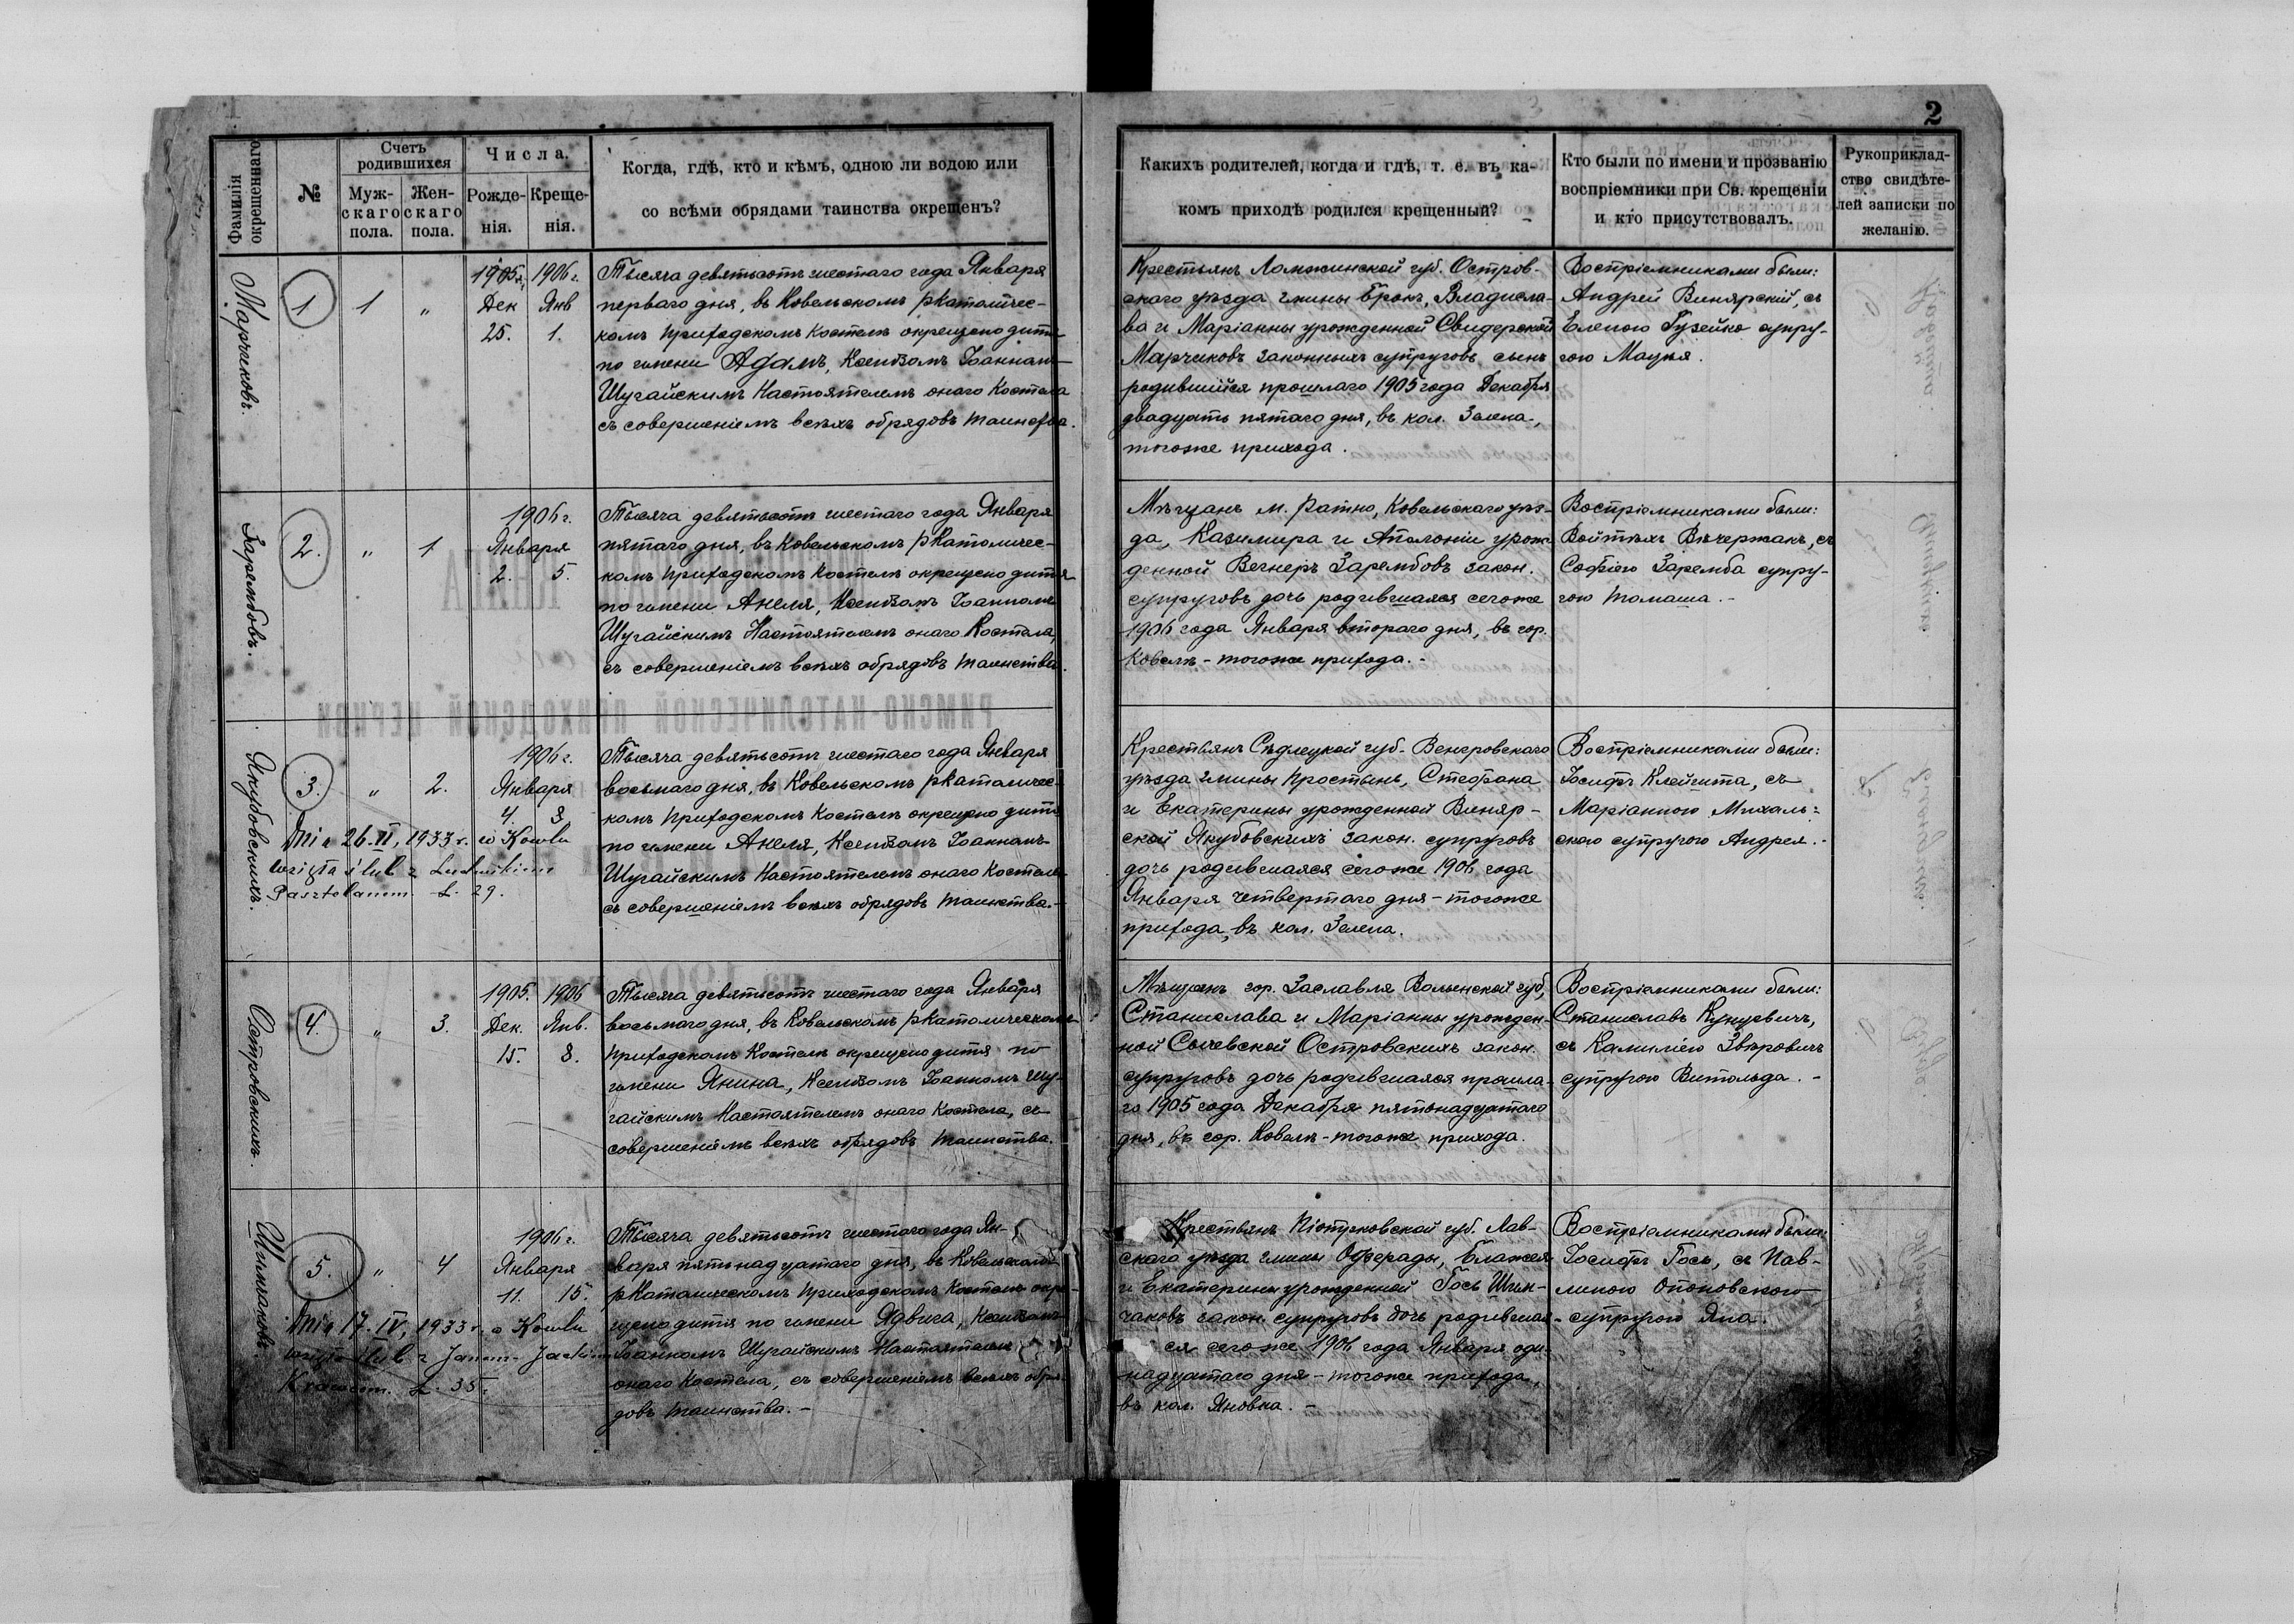 2
Фамилія
окрещеннаго
№
Счетъ
родившихся
Муж-
скаго
пола.
Жен-
скаго
пола.
Числа.
Рожде-
нія.
Креще-
нія.
Когда, гдѣ, кто и кѣмъ, одною ли водою или
со всѣми обрядами таинства окрещенъ?
Какихъ родителей, когда и гдѣ, т. е. въ ка-
комъ приходѣ родился крещенный?
Кто были по имени и прозванію
воспріемники при Св. крещеніи
и кто присутствовалъ.
Рукоприклад-
ство свидѣте-
лей записки по
желанію.
Марчиковъ.
1
1
"
1905 г. 1906 г.
Дек Янв
25. 1.
Тысяча девятьсотъ шестаго года Января
перваго дня, въ Ковельскомъ рКатоличес-
комъ приходскомъ Костелѣ окрещено дитя
по имени Адамъ, Ксендзомъ Іоанномъ
Шугайскимъ Настоятелемъ онаго Костела
съ совершеніемъ всѣхъ обрядовъ таинства.
Крестьянъ Ломжинской губ. Остров-
скаго уѣзда гмины Брокъ, Владисла-
ва и Маріанны урожденной Свидерской
Марчиковъ законныхъ супруговъ сынъ
родившійся прошлаго 1905 года Декабря
двадцать пятаго дня, въ кол. Зелена,
тогоже прихода.
Воспріемниками были:
Андрей Винярскій, съ
Еленою Гузейко супру-
гою Мацея.
Зарембовъ.
2.
"
1
1906 г.
Января
2. 5.
Тысяча девятьсотъ шестаго года Января
пятаго дня, въ Ковельскомъ рКатоличес-
комъ приходскомъ Костелѣ окрещено дитя
по имени Анеля, Ксендзомъ Іоанномъ
Шугайскимъ Настоятелемъ онаго Костела,
съ совершеніемъ всѣхъ обрядовъ таинства.
Мѣщанъ м. Ратно, Ковельскаго уѣз-
да, Казимира и Аполоніи урож-
денной Вегнеръ Зарембовъ закон.
супруговъ дочь родившаяся сегоже
1906 года Января втораго дня, въ гор.
Ковелѣ - тогоже прихода. -
Воспріемниками были:
Войтѣхъ Вѣчержакъ, съ
Софіею Заремба супру-
гою Томаша. -
Якубовскихъ.
3.
"
2.
1906 г.
Января
4. 8.
Dnia 26.II, 1933 r. w Kowlu
wzięła ślub z Ludwikiem
Pasztelanem. L. 29.
Тысяча девятьсотъ шестаго года Января
восьмаго дня, въ Ковельскомъ рКатоличес-
комъ приходскомъ Костелѣ окрещено дитя
по имени Анеля, Ксендзомъ Іоанномъ
Шугайскимъ Настоятелемъ онаго Костела
съ совершеніемъ всѣхъ обрядовъ таинства. -
Крестьянъ Сѣдлецкой губ. Венгровскаго
уѣзда гмины Простынь, Стефана
и Екатерины урожденной Виняр-
ской Якубовскихъ закон. супруговъ
дочь родившаяся сегоже 1906 года
Января четвертаго дня - тогоже
прихода, въ кол. Зелена.
Воспріемниками были:
Іосифъ Клейгита, съ
Маріанною Михаль-
скою супругою Андрея. -
Островскихъ.
4.
"
3.
1905. 1906
Дек. Янв.
15. 8.
Тысяча девятьсотъ шестаго года Января
восьмаго дня, въ Ковельскомъ рКатолическомъ
приходскомъ Костелѣ окрещено дитя по
имени Янина, Ксендзомъ Іоанномъ Шу-
гайскимъ Настоятелемъ онаго Костела, съ
совершеніемъ всѣхъ обрядовъ таинства.
Мѣщанъ гор. Заславля Волынской губ,
Станислава и Маріанны урожден-
ной Сычевской Островскихъ закон.
супруговъ дочь родившаяся прошла-
го 1905 года Декабря пятьнадцатаго
дня, въ гор. Ковелѣ - тогоже прихода.
Воспріемниками были:
Станиславъ Кунцевичъ,
съ Камиліею Звѣровичъ
супругою Витольда. -
Шимчаковъ.
5.
"
4
1906 г.
Января
11. 15.
Dnia 17.IV, 1933 r. w Kowlu
wzięła ślub z Janem
L. 35.
Тысяча девятьсотъ шестаго года Ян-
варя пятьнадцатаго дня, въ Ковельскомъ
рКатолическомъ приходскомъ Костелѣ окре-
щено дитя по имени Ядвига, Ксендзомъ
Іоанномъ Шугайскимъ Настоятелемъ
онаго Костела, съ совершеніемъ всѣхъ обря-
довъ таинства. -
Крестьянъ Піотрковской губ. Лав-
скаго уѣзда гмины Блажея
и Екатерины урожденной Гось Шим-
чаковъ закон. супруговъ дочь родившая-
ся сегоже 1906 года Января оди-
надцатаго дня - тогоже прихода,
въ кол. Яновка. -
Воспріемниками были:
Іосифъ Гось, съ Пав-
линою Опоновскою
супругою Яна.